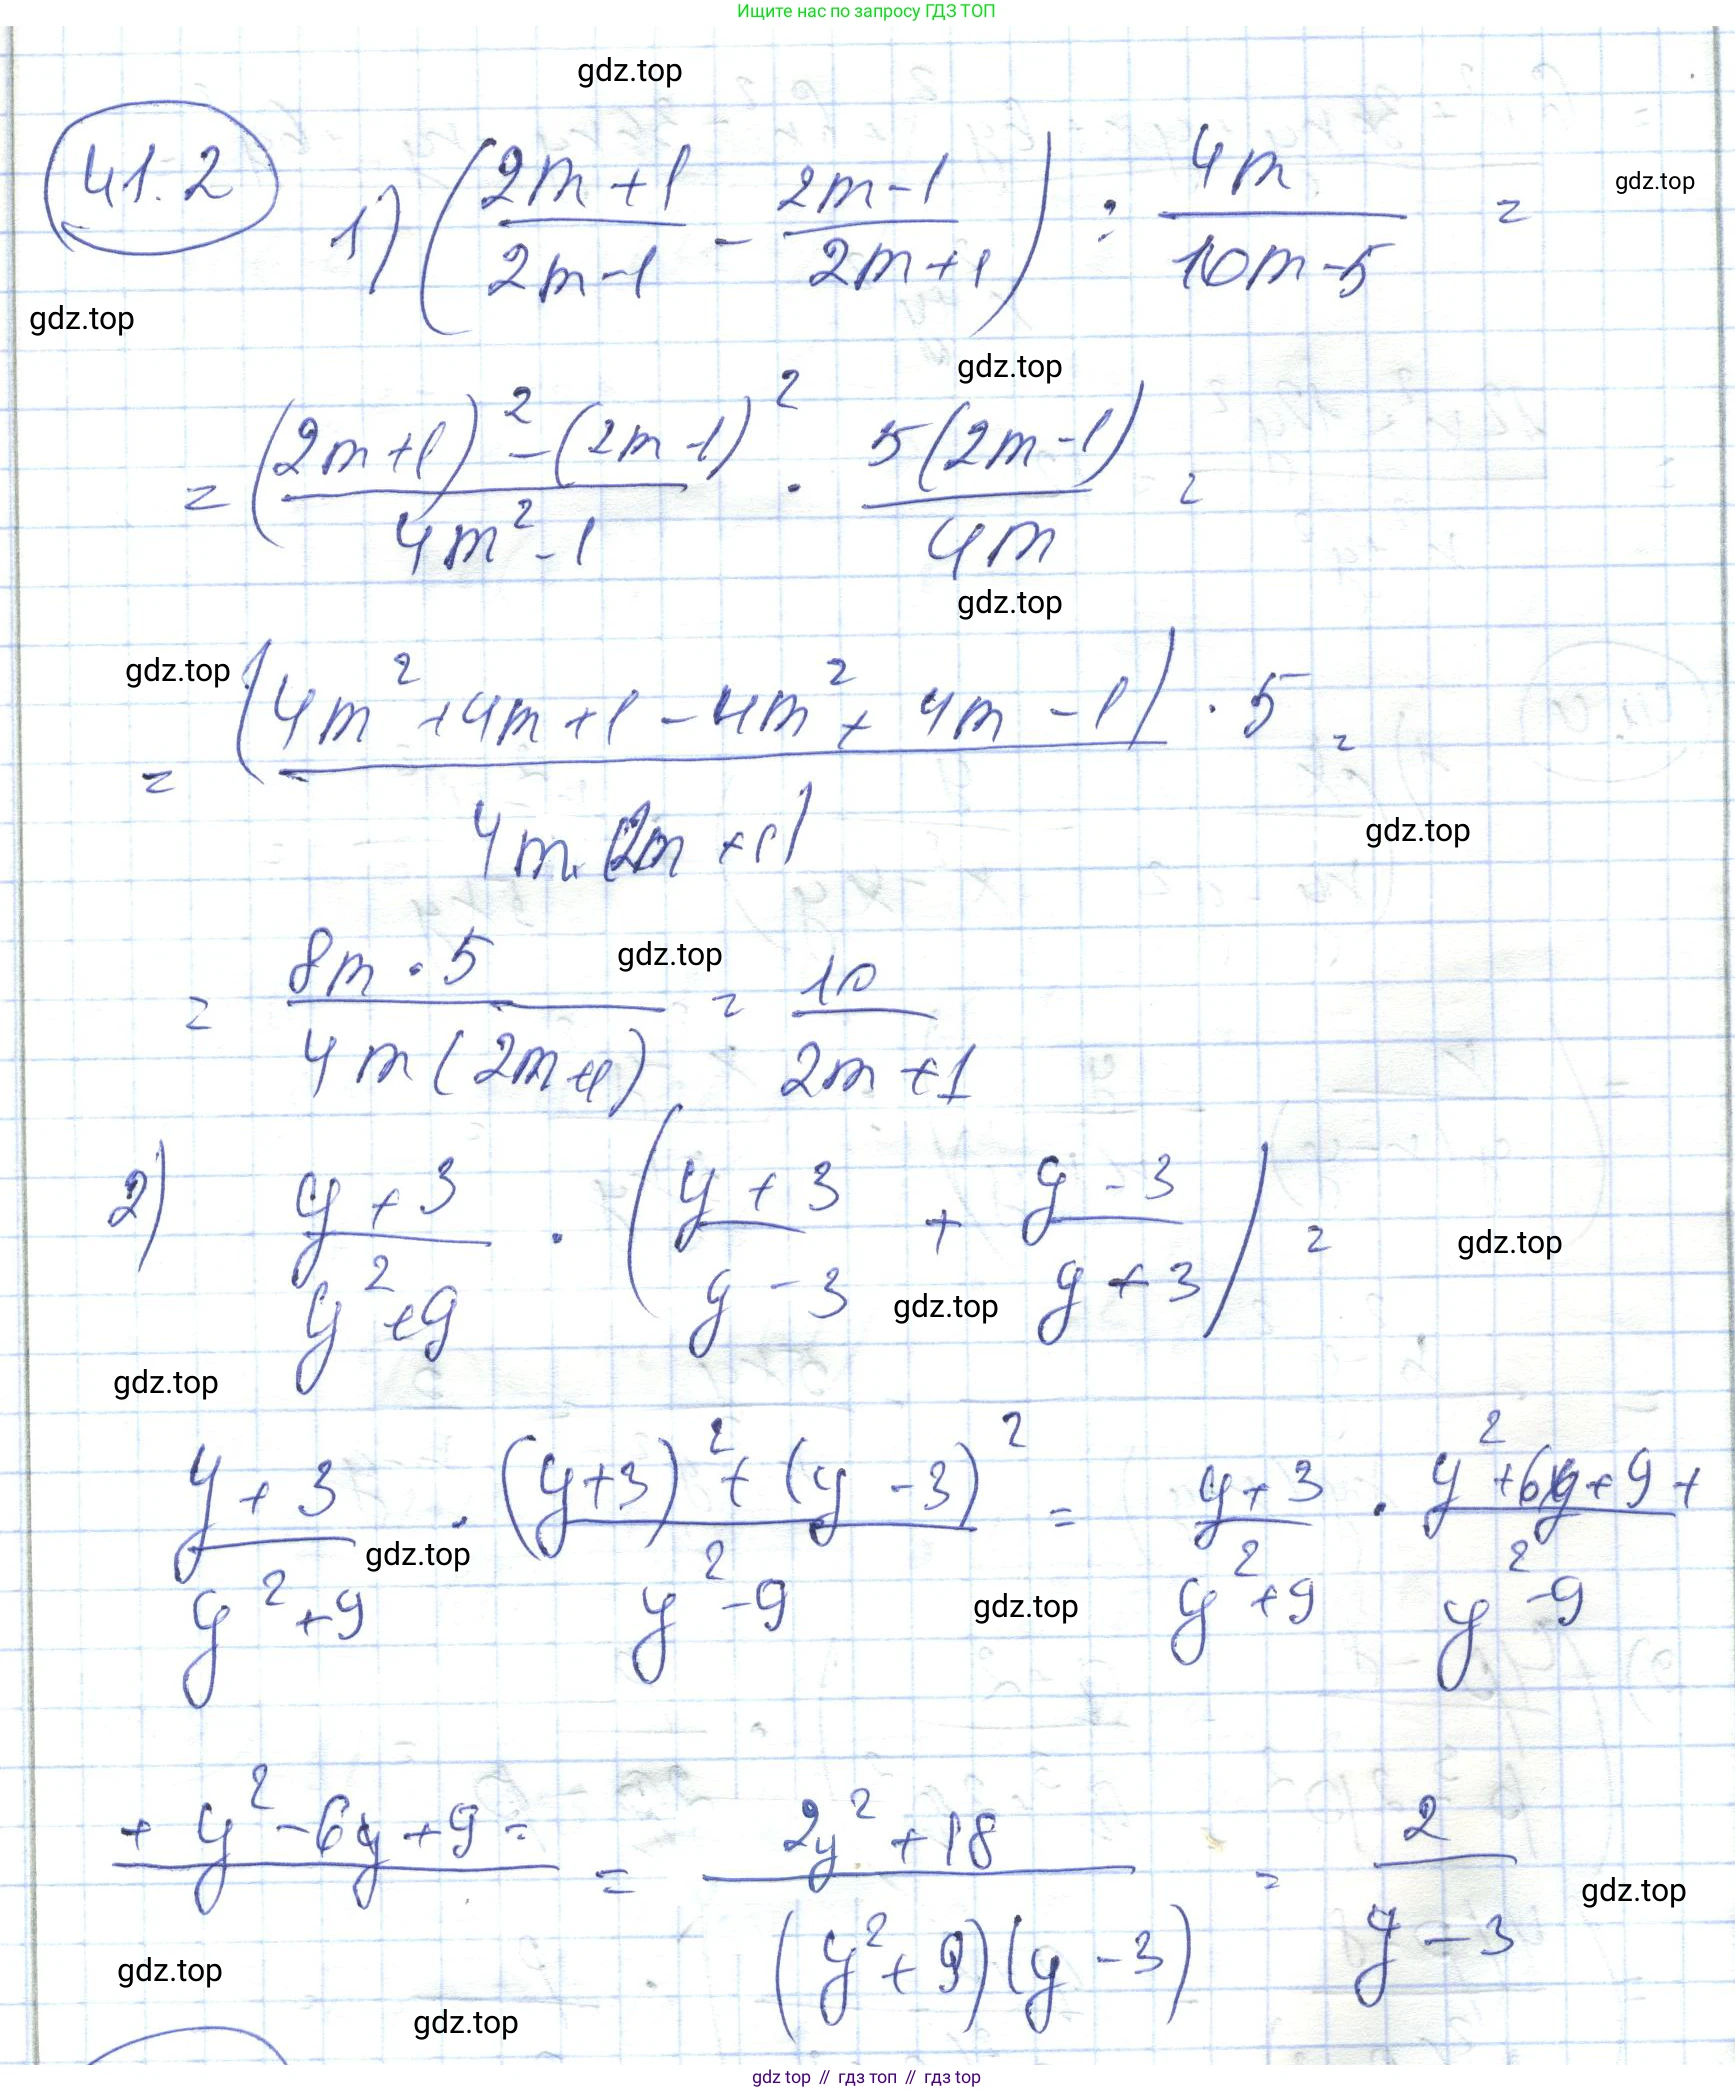 Ищите нас по запросу ГДЗ ТОП
gdz.top
41.2 1) ((2m+1)/(2m-1) - (2m-1)/(2m+1)) : 4m/(10m-5) =
gdz.top
gdz.top
gdz.top
= ((2m+1)² - (2m-1)²)/(4m²-1) · 5(2m-1)/4m =
gdz.top
gdz.top
= (4m²+4m+1-4m²+4m-1)·5/(4m·(2m+1)) =
gdz.top
= 8m·5/(4m(2m+1)) = 10/(2m+1)
gdz.top
2) (y+3)/(y²+9) · ((y+3)/(y-3) + (y-3)/(y+3)) =
gdz.top
gdz.top
gdz.top
(y+3)/(y²+9) · ((y+3)²+(y-3)²)/(y²-9) = (y+3)/(y²+9) · (y²+6y+9+)/(y²-9)
gdz.top
gdz.top
+ y²-6y+9 = = (2y²+18)/((y²+9)(y-3)) = 2/(y-3)
gdz.top
gdz.top
gdz.top
gdz top // гдз топ // гдз top